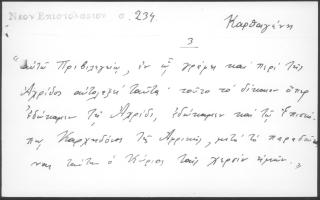 Νεον Επιστολαριον σ. 234 Καρθαγένη
3
"αὐτῷ Πριβιλεγίῳ, ἐν ᾧ γράφει καὶ περὶ τῆς
Αχρίδος αὐτολεξεὶ ταῦτα· τοῦτο τὸ δίκαιον ὅπερ
ἐδώκαμεν τῇ Αχρίδι, ἐδώκαμεν καὶ τῷ Ἐπισκό-
πῳ Καρχηδόνος τῆς Αφρικῆς, μετὰ τὸ παραδῶ-
ναι ταύτην ὁ Κύριος ταῖς χερσὶν ἡμῶν."